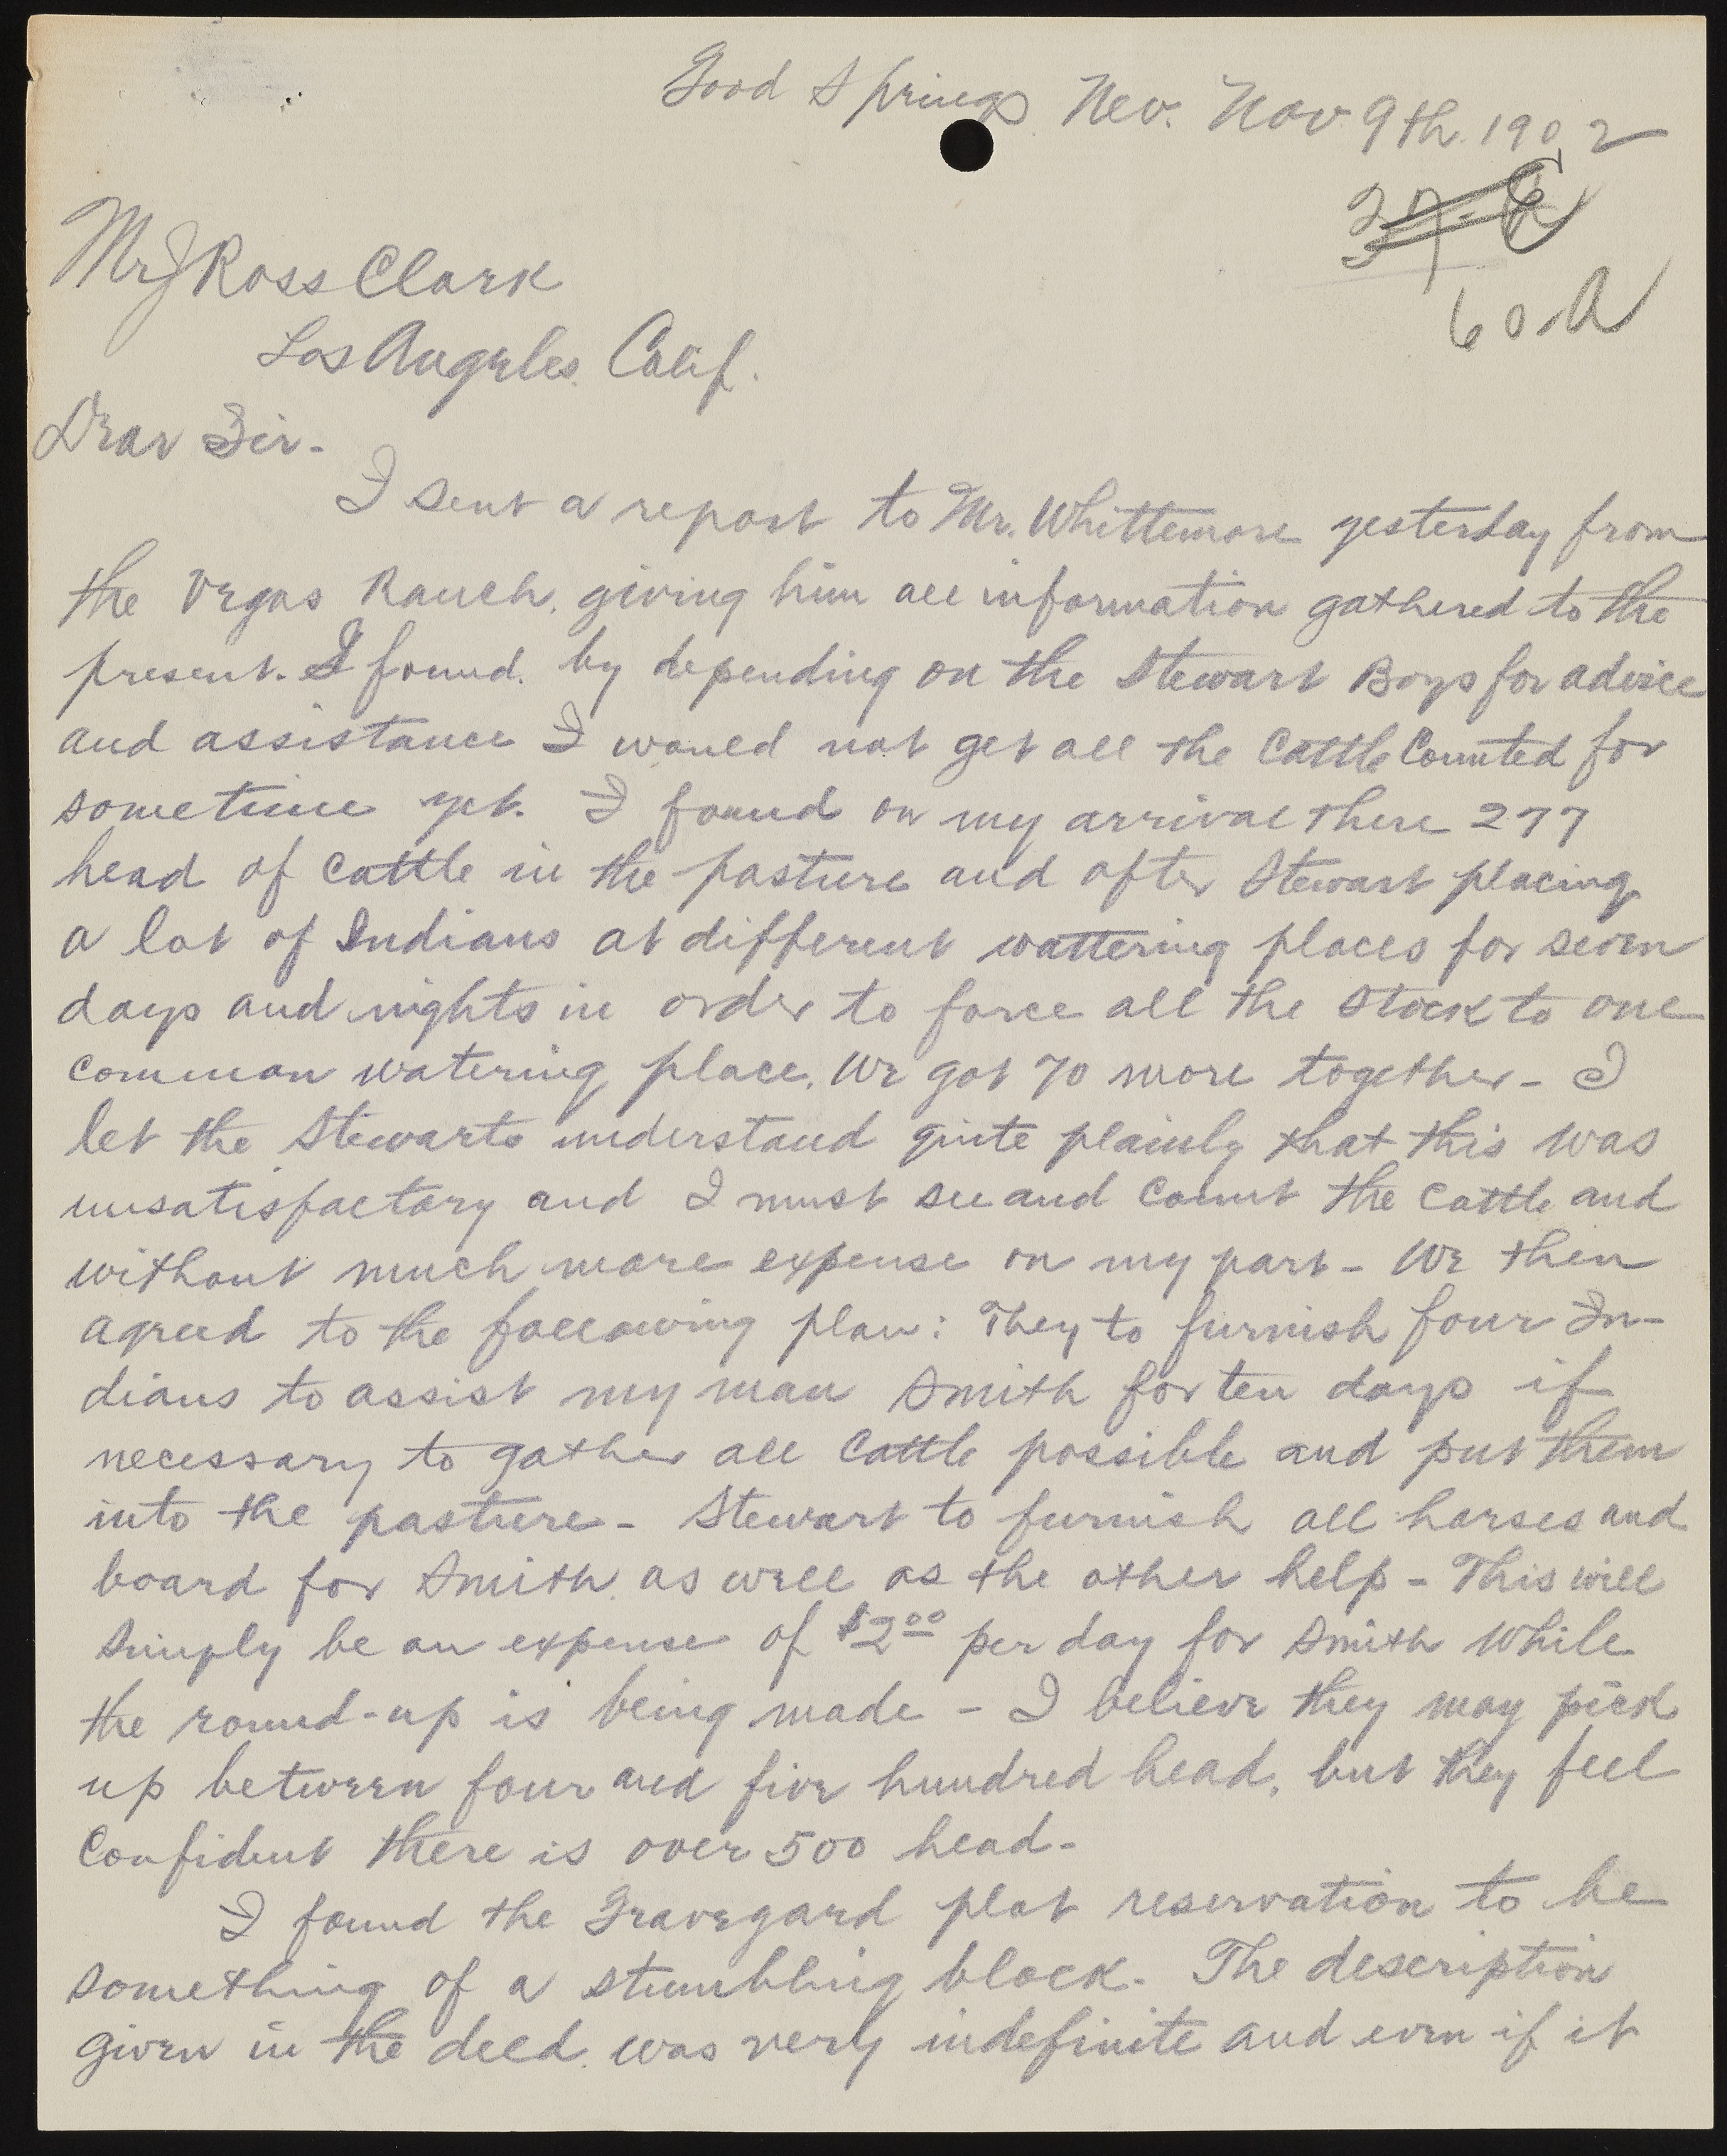 Good Springs Nev. Nov 9th. 1902
60.A
Mr J Ross Clark
Los Angeles. Calif.
Dear Sir-
I sent a report to Mr. Whittemore yesterday from
the Vegas Ranch, giving him all information gathered to the
present. I found by depending on the Stewart Boys for advice
and assistance I would not get all the Cattle Counted for
sometime yet. I found on my arrival there 277
head of Cattle in the pasture and after Stewart placing
a lot of Indians at different wattering places for seven
days and nights in order to force all the stock to one
common watering place. We got 70 more together - I
let the Stewarts understand quite plainly that this was
unsatisfactory and I must see and count the cattle and
without much more expense on my part - We then
agreed to the following plan: They to furnish four In-
dians to assist my man Smith for ten days if
necessary to gather all Cattle possible and put them
into the pasture - Stewart to furnish all horses and
board for Smith as well as the other help - This will
simply be an expense of $2.00 per day for Smith while
the round-up is being made - I believe they may pick
up between four and five hundred head, but they feel
Confident there is over 500 head -
I found the Graveyard plot reservation to be
something of a stumbling block. The description
given in the deed was very indefinite and even if it